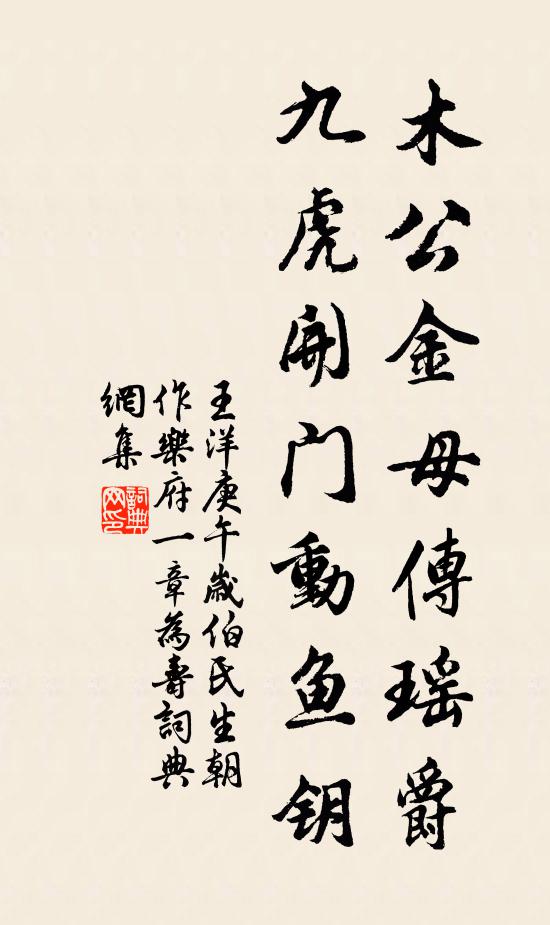 木公金母傳瑤爵
九虎開門動魚钥
王洋庚午歲伯氏生朝
作樂府一章為壽詞典
網集
詞典
网印